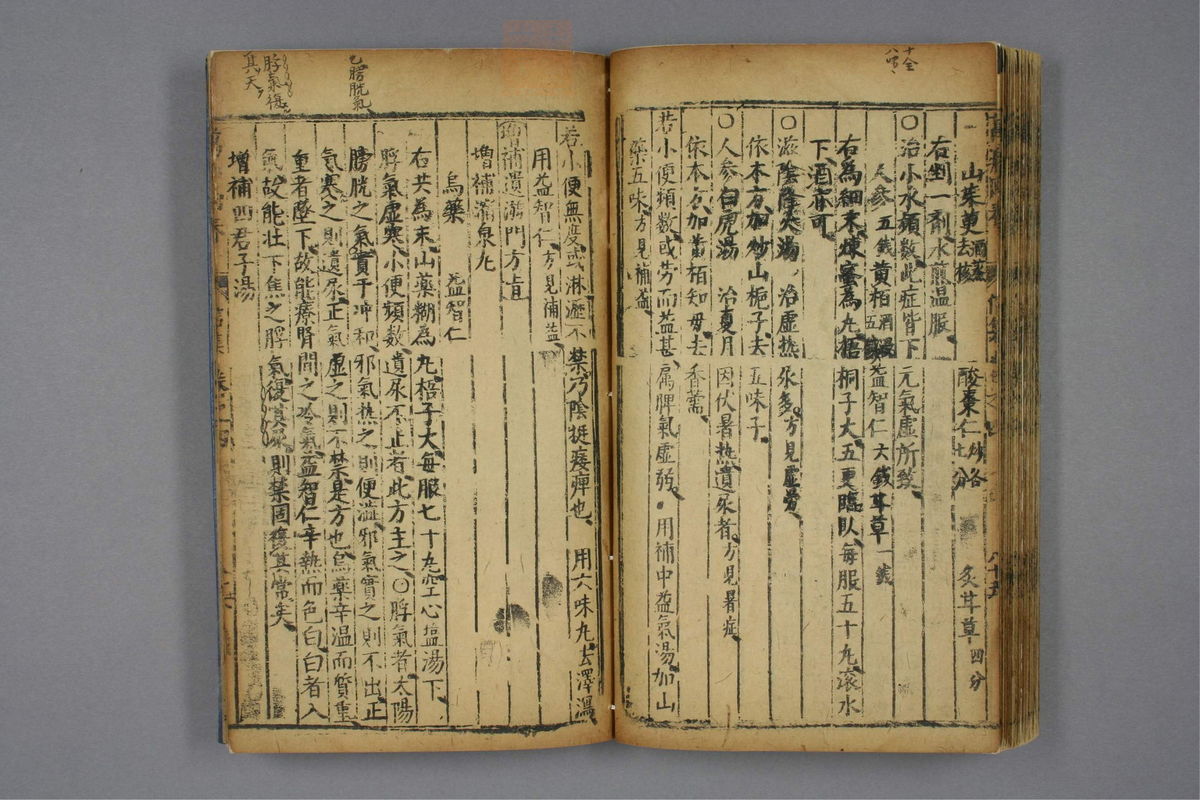 十全
八味
山茱萸酒蒸去核 酸棗仁炒七分 炙甘草四分
右剉一劑水煎溫服
〇治小水頻數此症皆下元氣虛所致
人參五錢 黃柏酒浸五錢 益智仁六錢 甘草一錢
右為細末煉蜜為丸梧桐子大五更臨臥每服五十丸滾水
下酒亦可
〇滋陰降火湯 治虛热尿多方見虛勞
依本方加炒山梔子去五味子
〇人參白虎湯 治夏月因伏暑热遺尿者方見暑症
依本方加黃柏知母去香薷
若小便頻數或劳而益甚属脾氣虛弱用補中益氣湯加山
藥五味方見補益
乙膀胱氣
脬氣復
其天
若小便無度或淋瀝不禁乃陰挺痿痺也用六味丸去澤瀉
用益智仁方見補益
增補遺溺門方旨
增補瀉泉丸
烏藥 益智仁
右共為末山藥糊為丸梧子大每服七十丸空心塩湯下
脬氣虛寒小便頻數遺尿不止者此方主之〇脬氣者太陽
膀胱之氣貫于冲和邪氣热之則便澁邪氣實之則不出正
氣寒之則遺尿正氣虛之則不禁是方也烏藥辛温而質重
重者墜下故能療腎間之冷氣益智仁辛熱而色白白者入
氣故能壯下焦之脬氣復其尿則禁固復其常矣
增補四君子湯